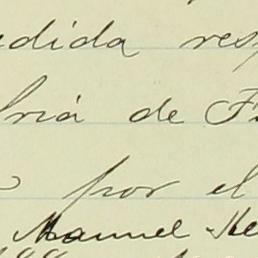 edida res
ria de F
por el
Manuel He